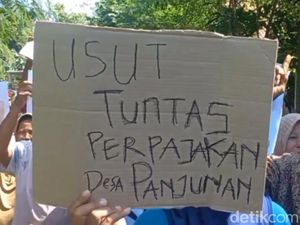 USUT
TUNTAS
PERPAJAKAN
DESA PANJUNAN
detikcom